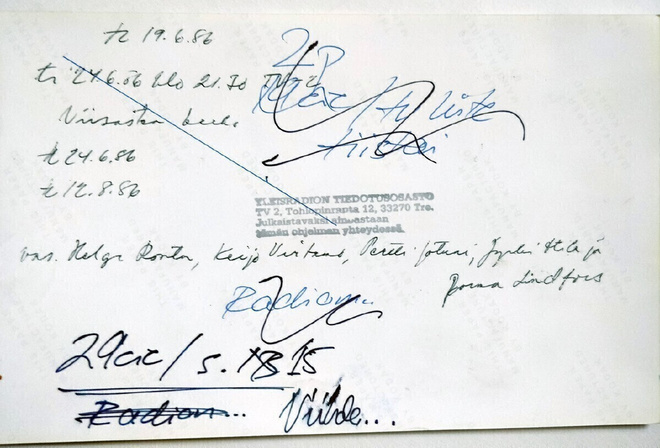 tz 19.6.86
2P
ti 24.6.86 klo 21.70 TV 2
29cic / tv liite
Viisasten
tiistai
tz 24.6.86
tz 12.8.86
YLEISRADION TIEDOTUSOSASTO
TV 2, Tohlopinranta 12, 33270 Tre.
Julkaistavaksi ainoastaan
tämän ohjelman yhteydessä.
vas. Helge Keijo Virtanen, Pertti Jyrki ja
Jorma Lindfors
Radion..
29cic / s. 15
Radion... Viihde...